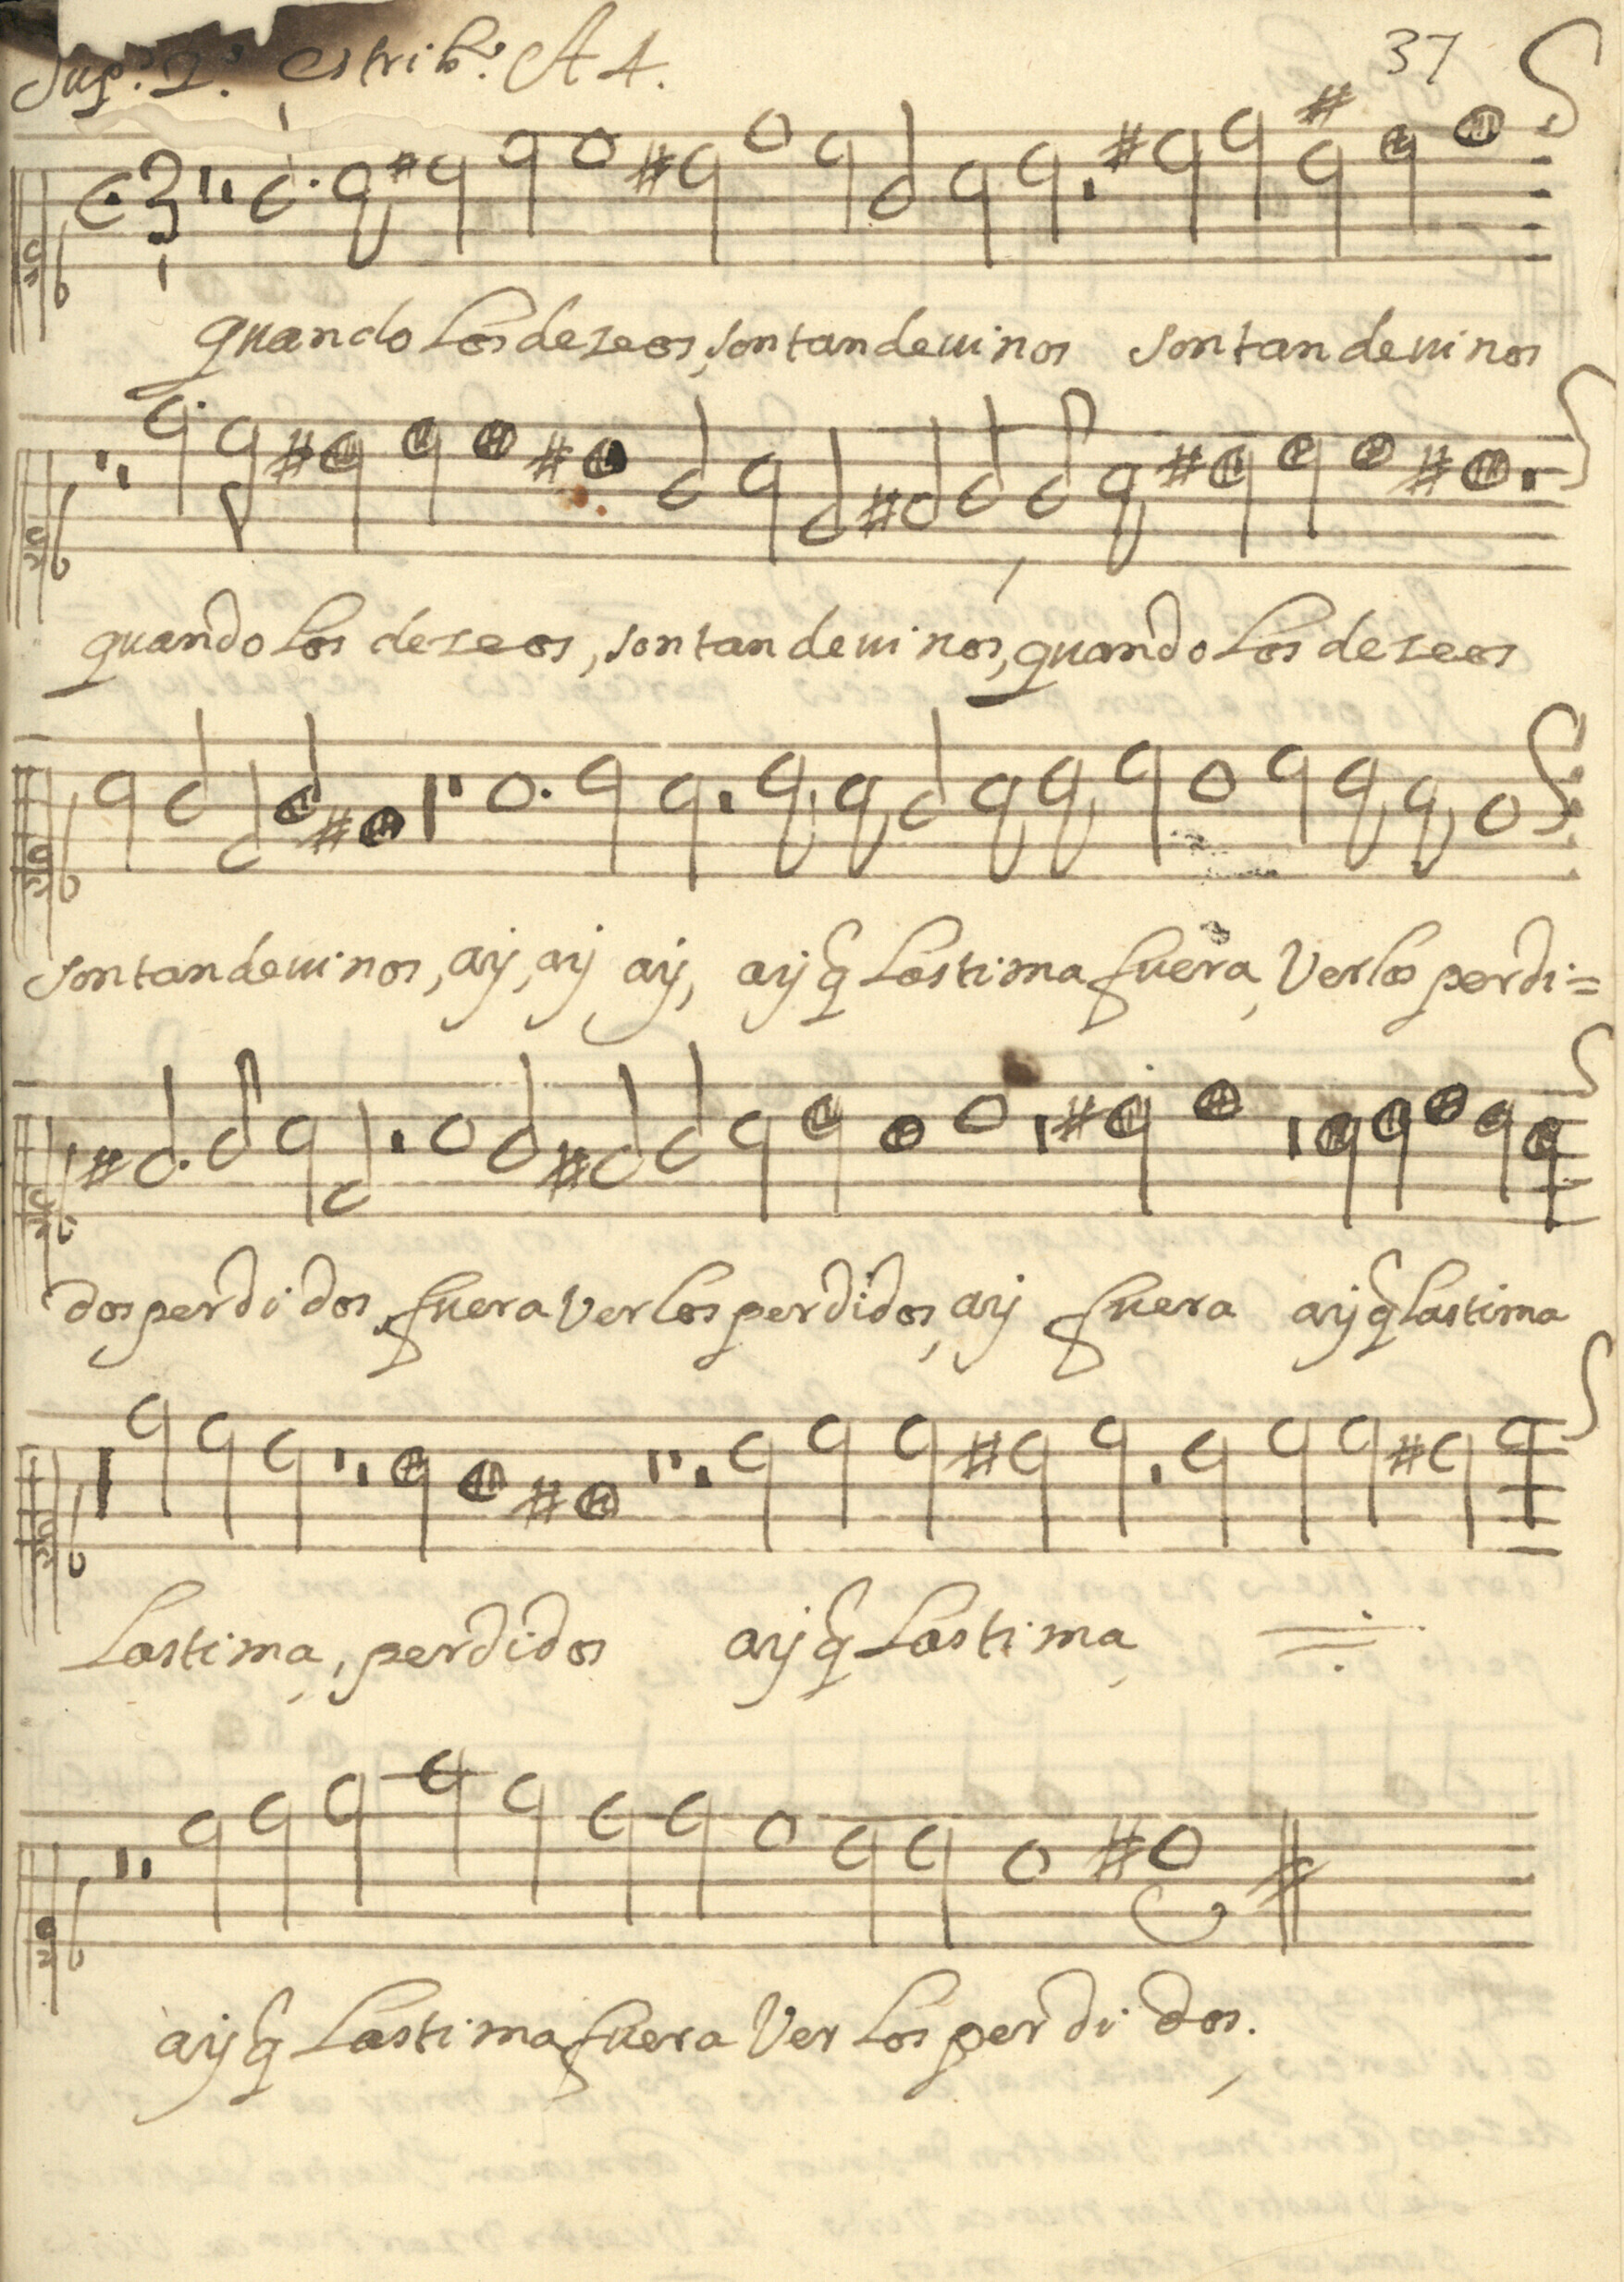 Sup.º 2.º estribº. A 4.
37
quando los deseos, son tan deuinos son tan deuinos
quando los deseos, son tan deuinos, quando los deseos
son tan deuinos, ay, ay ay, ay q̃ lastima fuera, Verlos perdi=
dos perdidos, fuera Verlos perdidos, ay fuera ay q̃ lastima
lastima, perdidos ay q̃ lastima
ay q̃ lastima fuera Ver los perdidos.